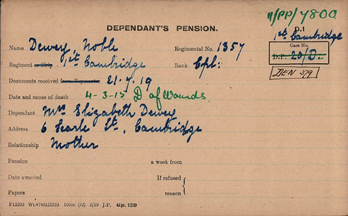 11/PP/4800
DEPENDANT'S PENSION.
D.1
1st Cambridge
Name Dewey, Noble
Regimental No. 1357
Case No.
D.P. 20/D.
Regiment 1st Cambridge
Rank Cpl:
DEN 5/9
Documents received 21.7.19
Date and cause of death 4-3-15 D of Wounds
Dependant Mrs Elizabeth Dewey
Address 6 Searle St., Cambridge
Relationship Mother
Pension a week from
Date awarded If refused
Papers reason
Gp. 159